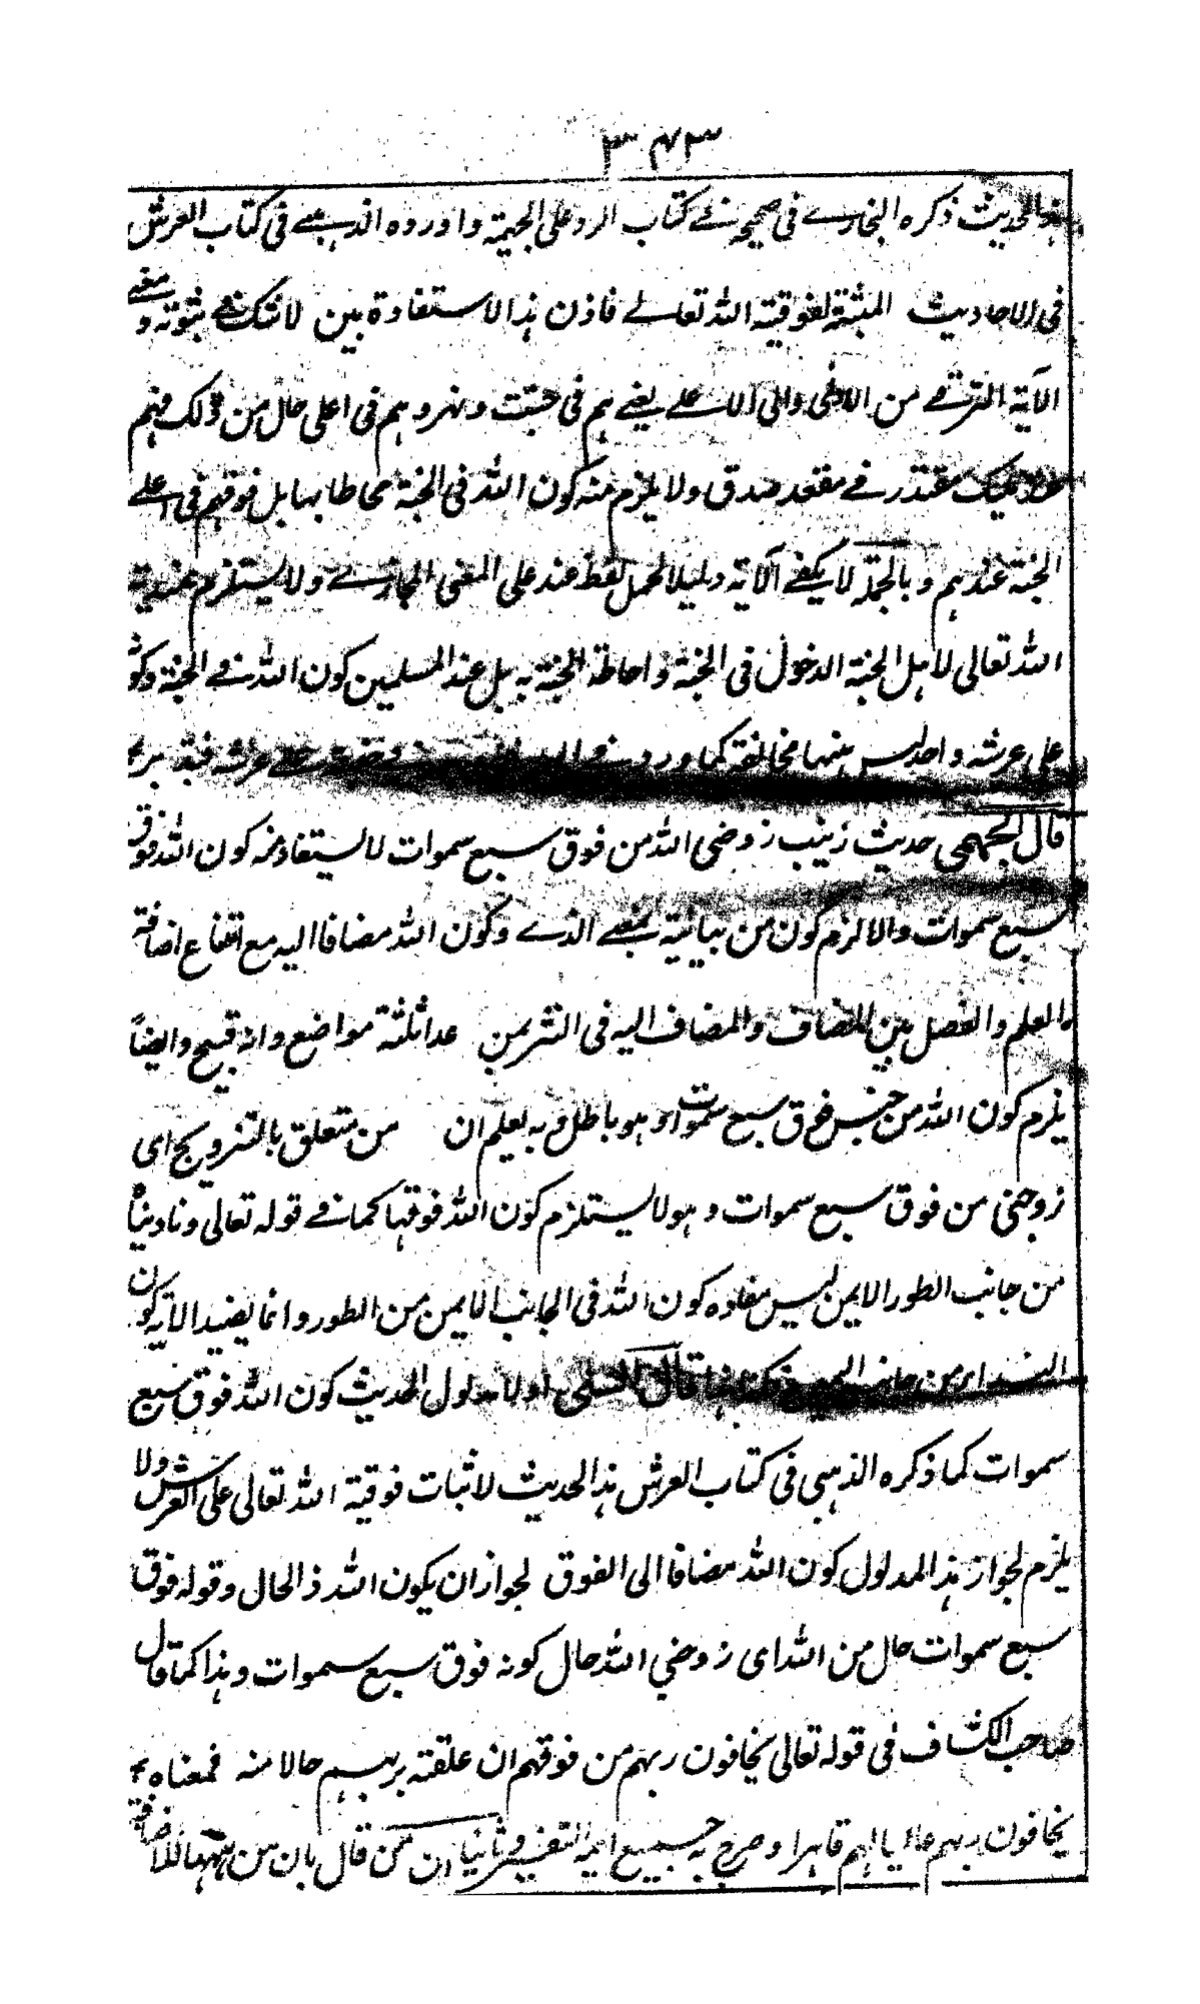 ٣٤٣
هذا الحديث ذكره البخاري في صحيحه في كتاب الرد على الجهمية واورده الذهبي في كتاب العرش
في الاحاديث المثبتة لفوقية الله تعالى فاذن هذا الاستفادة بين لا شك في ثبوته و معنى
الآية الترقي من الادنى والى الاعلى يعني هم في جنت ونهر وهم في اعلى حال من ذلك فهم
عند مليك مقتدر في مقعد صدق ولا يلزم منه كون الله في الجنة محاطا بها بل فوقهم في اعلى
الجنة عندهم وبالجملة لا يكفي الآية دليلا لحمل لفظ عند على المعنى المجازي ولا يستلزم عندية
الله تعالى لاهل الجنة الدخول في الجنة واحاطة الجنة به بل عند المسلمين كون الله في الجنة وكونه
على عرشه واحد ليس بينهما مخالفة كما ورد في على عرشه فتدبر
قال الجهمي حديث زينب زوجني الله من فوق سبع سموات لا يستفاد منه كون الله فوق
سبع سموات والا لزم كون من بيانية بمعنى الذي وكون الله مضافا اليه مع امتناع اضافة
العلم والفصل بين المضاف والمضاف اليه في النثر بمن عدا ثلثة مواضع وانه قبيح وايضاً
يلزم كون الله من جنس فوق سبع سموات وهو باطل وبه يعلم ان من متعلق بالتزويج اى
زوجني من فوق سبع سموات وهو لا يستلزم كون الله فوقها كما في قوله تعالى وناديناه
من جانب الطور الايمن ليس مفاده كون الله في الجانب الايمن من الطور وانما يفيد الآية كون
النداء من جانب اليمين فكذا هذا قال السلفي اولا مدلول الحديث كون الله فوق سبع
سموات كما ذكره الذهبي في كتاب العرش هذا الحديث لاثبات فوقية الله تعالى على العرش ولا
يلزم لجواز هذا المدلول كون الله مضافا الى الفوق لجواز ان يكون الله ذا الحال وقوله فوق
سبع سموات حال من الله اى زوجني الله حال كونه فوق سبع سموات وهذا كما قال
صاحب الكشاف في قوله تعالى يخافون ربهم من فوقهم ان علقته بربهم حالا منه فمعناه
يخافون ربهم عاليا لهم قاهرا وصرح به جميع ايمة التفسير وثانيا ان من قال بان من ههنا للاضافة